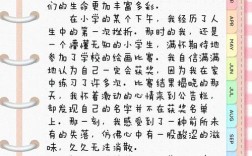 们的生命更加丰富多彩。
在小学的某个下午，我经历了人
生中的第一次挫折。那时的我，还是
一个懵懂无知的小学生，满怀期待地
参加了学校的绘画比赛。我自信满满
地认为自己一定会获奖，因为我在家
中练习了许多次。比赛结果揭晓的那
一天，我怀着激动的心情来到公告栏，
却发现自己的名字并不在获奖名单
上。那一刻，我感受到了一种前所未
有的失落，仿佛心中有一股酸涩的滋
味，久久无法消散。
APR
MAY
JUN
JUL
AUG
SEP